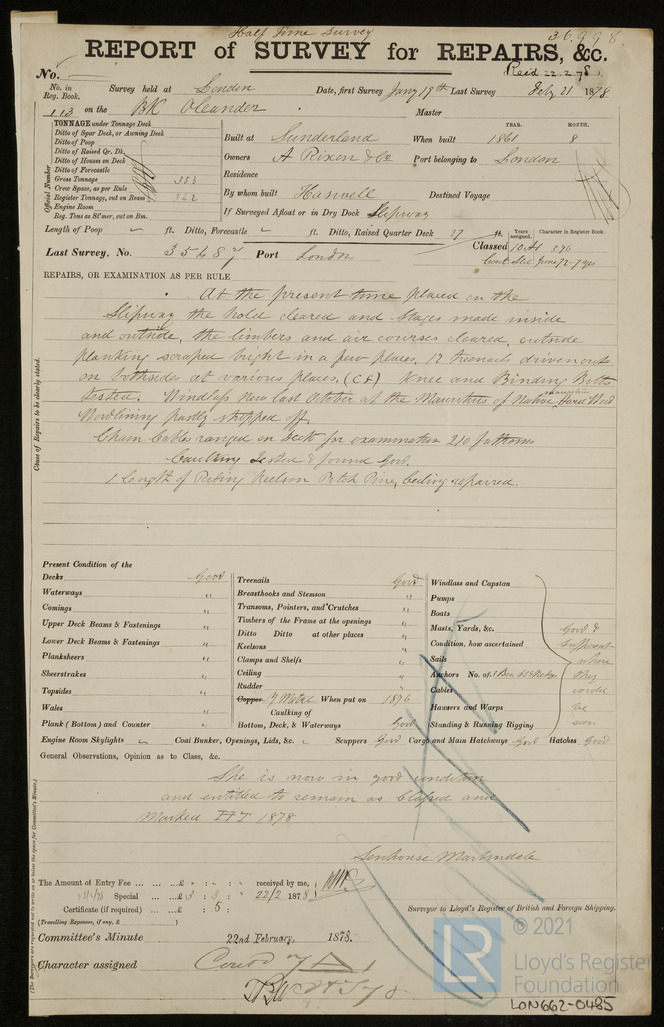 Half Time Survey
36,998
REPORT of SURVEY for REPAIRS, &c.
No.
Recd 22.2.78
No. in Reg. Book. Survey held at London Date, first Survey Jany 19th Last Survey Feby 21 1878
113 on the Bk Oleander Master
TONNAGE under Tonnage Deck
Ditto of Spar Deck, or Awning Deck
Ditto of Poop
Ditto of Raised Qr. Dk.
Ditto of Houses on Deck
Ditto of Forecastle
Gross Tonnage 353
Crew Space, as per Rule
Register Tonnage, cut on Beam 342
Engine Room
Reg. Tons as St'mer, cut on Bm.
Official Number
Built at Sunderland When built YEAR. 1861 MONTH. 8
Owners A Rixon & Co Port belonging to London
Residence
By whom built Haswell Destined Voyage
If Surveyed Afloat or in Dry Dock Slipway
Length of Poop ft. Ditto, Forecastle ft. Ditto, Raised Quarter Deck 27 ft.
Years assigned. Character in Register Book.
Last Survey, No. 35487 Port London Classed 10 A1
Cont. June 72-7 yrs
REPAIRS, OR EXAMINATION AS PER RULE
At the present time placed on the
Slipway the hold cleared and stages made inside
and outside, the limbers and air courses cleared, outside
planking scraped bright in a few places, 12 treenails driven out
on both sides at various places, (C F) Knee and Binding Bolts
tested. Windlass New last October at the Mauritius of Native Hard Wood
Wood lining partly stripped off
Chain Cables ranged on deck for examination 210 fathoms
Caulking Tested & found Good.
1 length of Riding Keelson Pitch Pine, Ceiling repaired.
Cause of Repairs to be clearly stated.
Present Condition of the
Decks Good
Waterways "
Comings "
Upper Deck Beams & Fastenings "
Lower Deck Beams & Fastenings "
Planksheers "
Sheerstrakes "
Topsides "
Wales "
Plank (Bottom) and Counter "
Treenails Good
Breasthooks and Stemson "
Transoms, Pointers, and Crutches "
Timbers of the Frame at the openings "
Ditto Ditto at other places "
Keelsons "
Clamps and Shelfs "
Ceiling "
Rudder "
Copper Y Metal When put on 1876
Caulking of
Bottom, Deck, & Waterways Good
Windlass and Capstan
Pumps
Boats
Masts, Yards, &c.
Condition, how ascertained
Sails
Anchors No. of 3 Bow
Cables
Hawsers and Warps
Standing & Running Rigging
Good &
sufficient
where
they
could
be
seen
Engine Room Skylights Coal Bunker, Openings, Lids, &c. Scuppers Good Cargo and Main Hatchways Good Hatches Good
General Observations, Opinion as to Class, &c.
She is now in good condition
and entitled to remain as Classed and
Marked HT 1878
Senhouse Martindale
The Amount of Entry Fee £ : : received by me,
Special £ 3 : 3 : 22/2 1878
Certificate (if required) : 5 :
(Travelling Expenses, if any, £ )
Surveyor to Lloyd's Register of British and Foreign Shipping.
Committee's Minute 22nd February, 1878.
Character assigned
© 2021
LR
Lloyd's Register
Foundation
LON662-0485